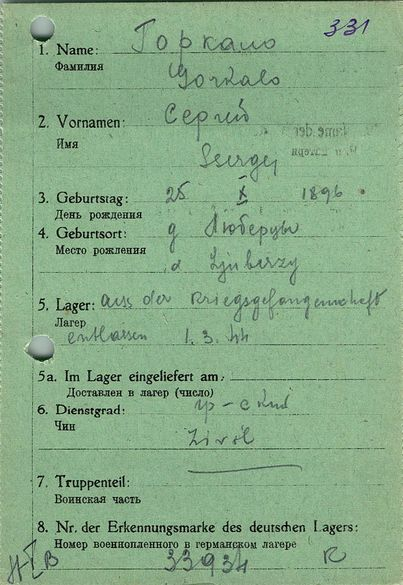 331
1. Name: Горкало
Фамилия
Gorkalo
2. Vornamen: Сергей
Имя
Sergej
3. Geburtstag: 25 X 1896
День рождения
4. Geburtsort: д Люберцы
Место рождения
d Ljuberzy
5. Lager: aus der Kriegsgefangenschaft
Лагер
entlassen 1. 3. 44
5a. Im Lager eingeliefert am:
Доставлен в лагер (число)
6. Dienstgrad: гр-ский
Чин
Zivil
7. Truppenteil:
Воинская часть
8. Nr. der Erkennungsmarke des deutschen Lagers:
Номер военнопленного в германском лагере
33934 R